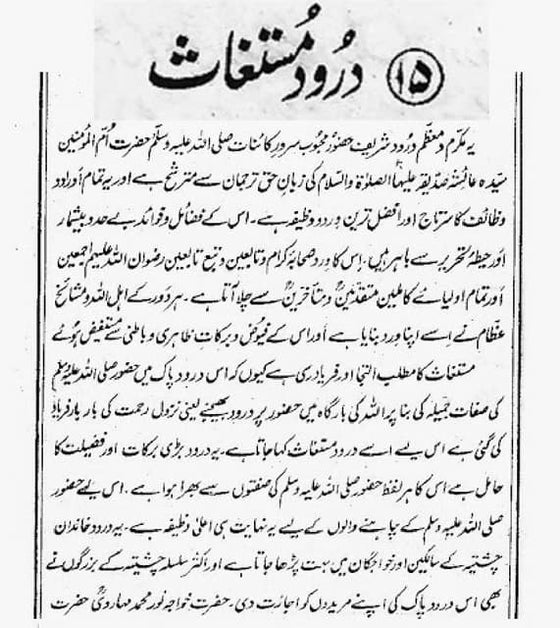 ۱۵ درود مستغاث
یہ مکرم و معظم درود شریف حضور محبوب سرور کائنات صلی اللہ علیہ وسلم حضرت اُمّ المومنین
سیدہ عائشہ صدیقہ علیہا الصلوٰۃ والسلام کی زبانِ حق ترجمان سے مترشح ہے اور یہ تمام اوراد و
وظائف کا سرتاج اور افضل ترین وِرد و وظیفہ ہے۔ اس کے فضائل و فوائد بے حد و بیشمار
اور حیطۂ تحریر سے باہر ہیں۔ اِس کا وِرد صحابہ کرام و تابعین و تبع تابعین رضوان اللہ علیہم اجمعین
اور تمام اولیائے کاملین متقدمینؒ و متأخرینؒ سے چلا آتا ہے۔ ہر دَور کے اہل اللہ و مشائخ
عظام نے اسے اپنا ورد بنایا ہے اور اس کے فیوض و برکات ظاہری و باطنی سے مستفیض ہوئے
مستغاث کا مطلب التجا اور فریاد رسی ہے کیوں کہ اس درود پاک میں حضور صلی اللہ علیہ وسلم
کی صفات جمیلہ کی بنا پر اللہ کی بارگاہ میں حضور پر درود بھیجنے یعنی نزول رحمت کی بار بار فریاد
کی گئی ہے اس لیے اسے درود مستغاث کہا جاتا ہے۔ یہ درود بڑی برکات اور فضیلت کا
حامل ہے اس کا ہر لفظ حضور صلی اللہ علیہ وسلم کی صفتوں سے بھرا ہوا ہے۔ اس لیے حضور
صلی اللہ علیہ وسلم کے چاہنے والوں کے لیے یہ نہایت ہی اعلیٰ وظیفہ ہے۔ یہ درود خاندان
چشتیہ کے سالکین اور خواجگان میں بہت پڑھا جاتا ہے اور اکثر سلسلہ چشتیہ کے بزرگوں نے
بھی اس درود پاک کی اپنے مریدوں کو اجازت دی۔ حضرت خواجہ نور محمد مہارویؒ حضرت